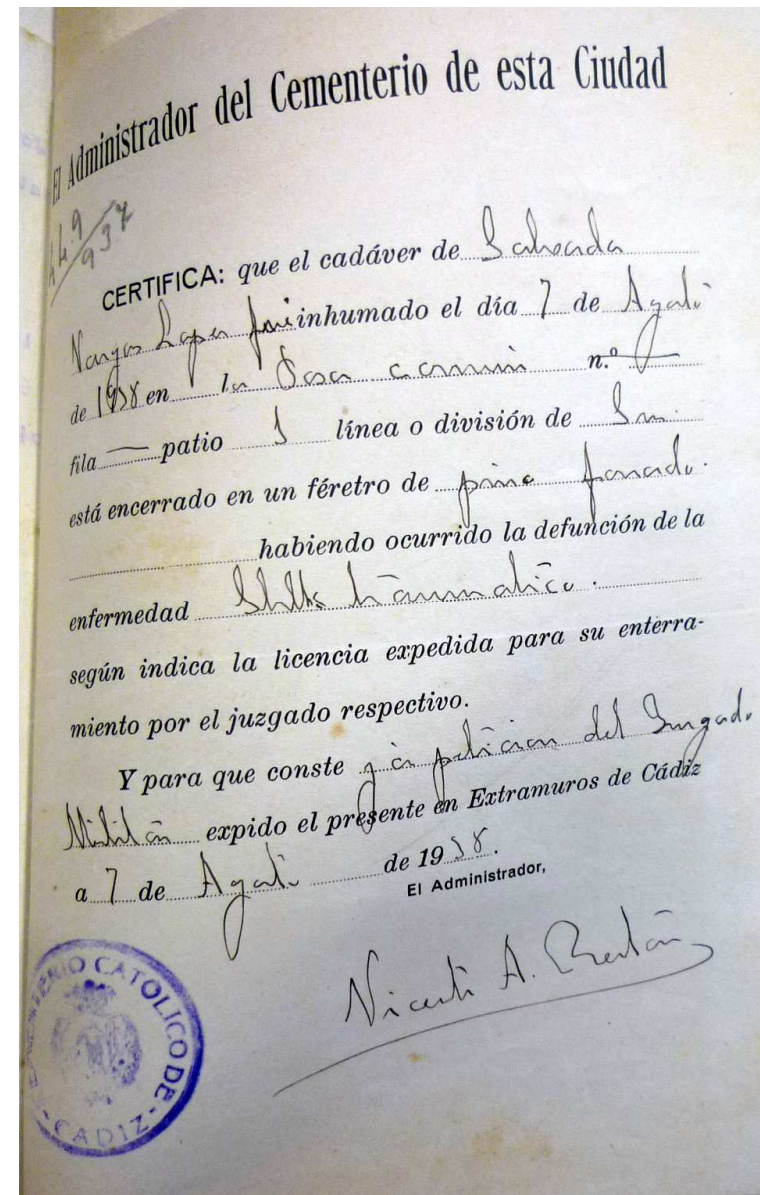 El Administrador del Cementerio de esta Ciudad
449
937
CERTIFICA: que el cadáver de
Vargas Lopez fué inhumado el día 7 de Agosto
de 1938 en la Fosa comun n.º —
fila — patio línea o división de
está encerrado en un féretro de pino forrado.
habiendo ocurrido la defunción de la
enfermedad traumatico.
según indica la licencia expedida para su enterra-
miento por el juzgado respectivo.
Y para que conste y a peticion del Juzgado
Militar expido el presente en Extramuros de Cádiz
a 7 de Agosto de 1938.
El Administrador,
Vicente A.
CEMENTERIO CATOLICO DE
- CADIZ -